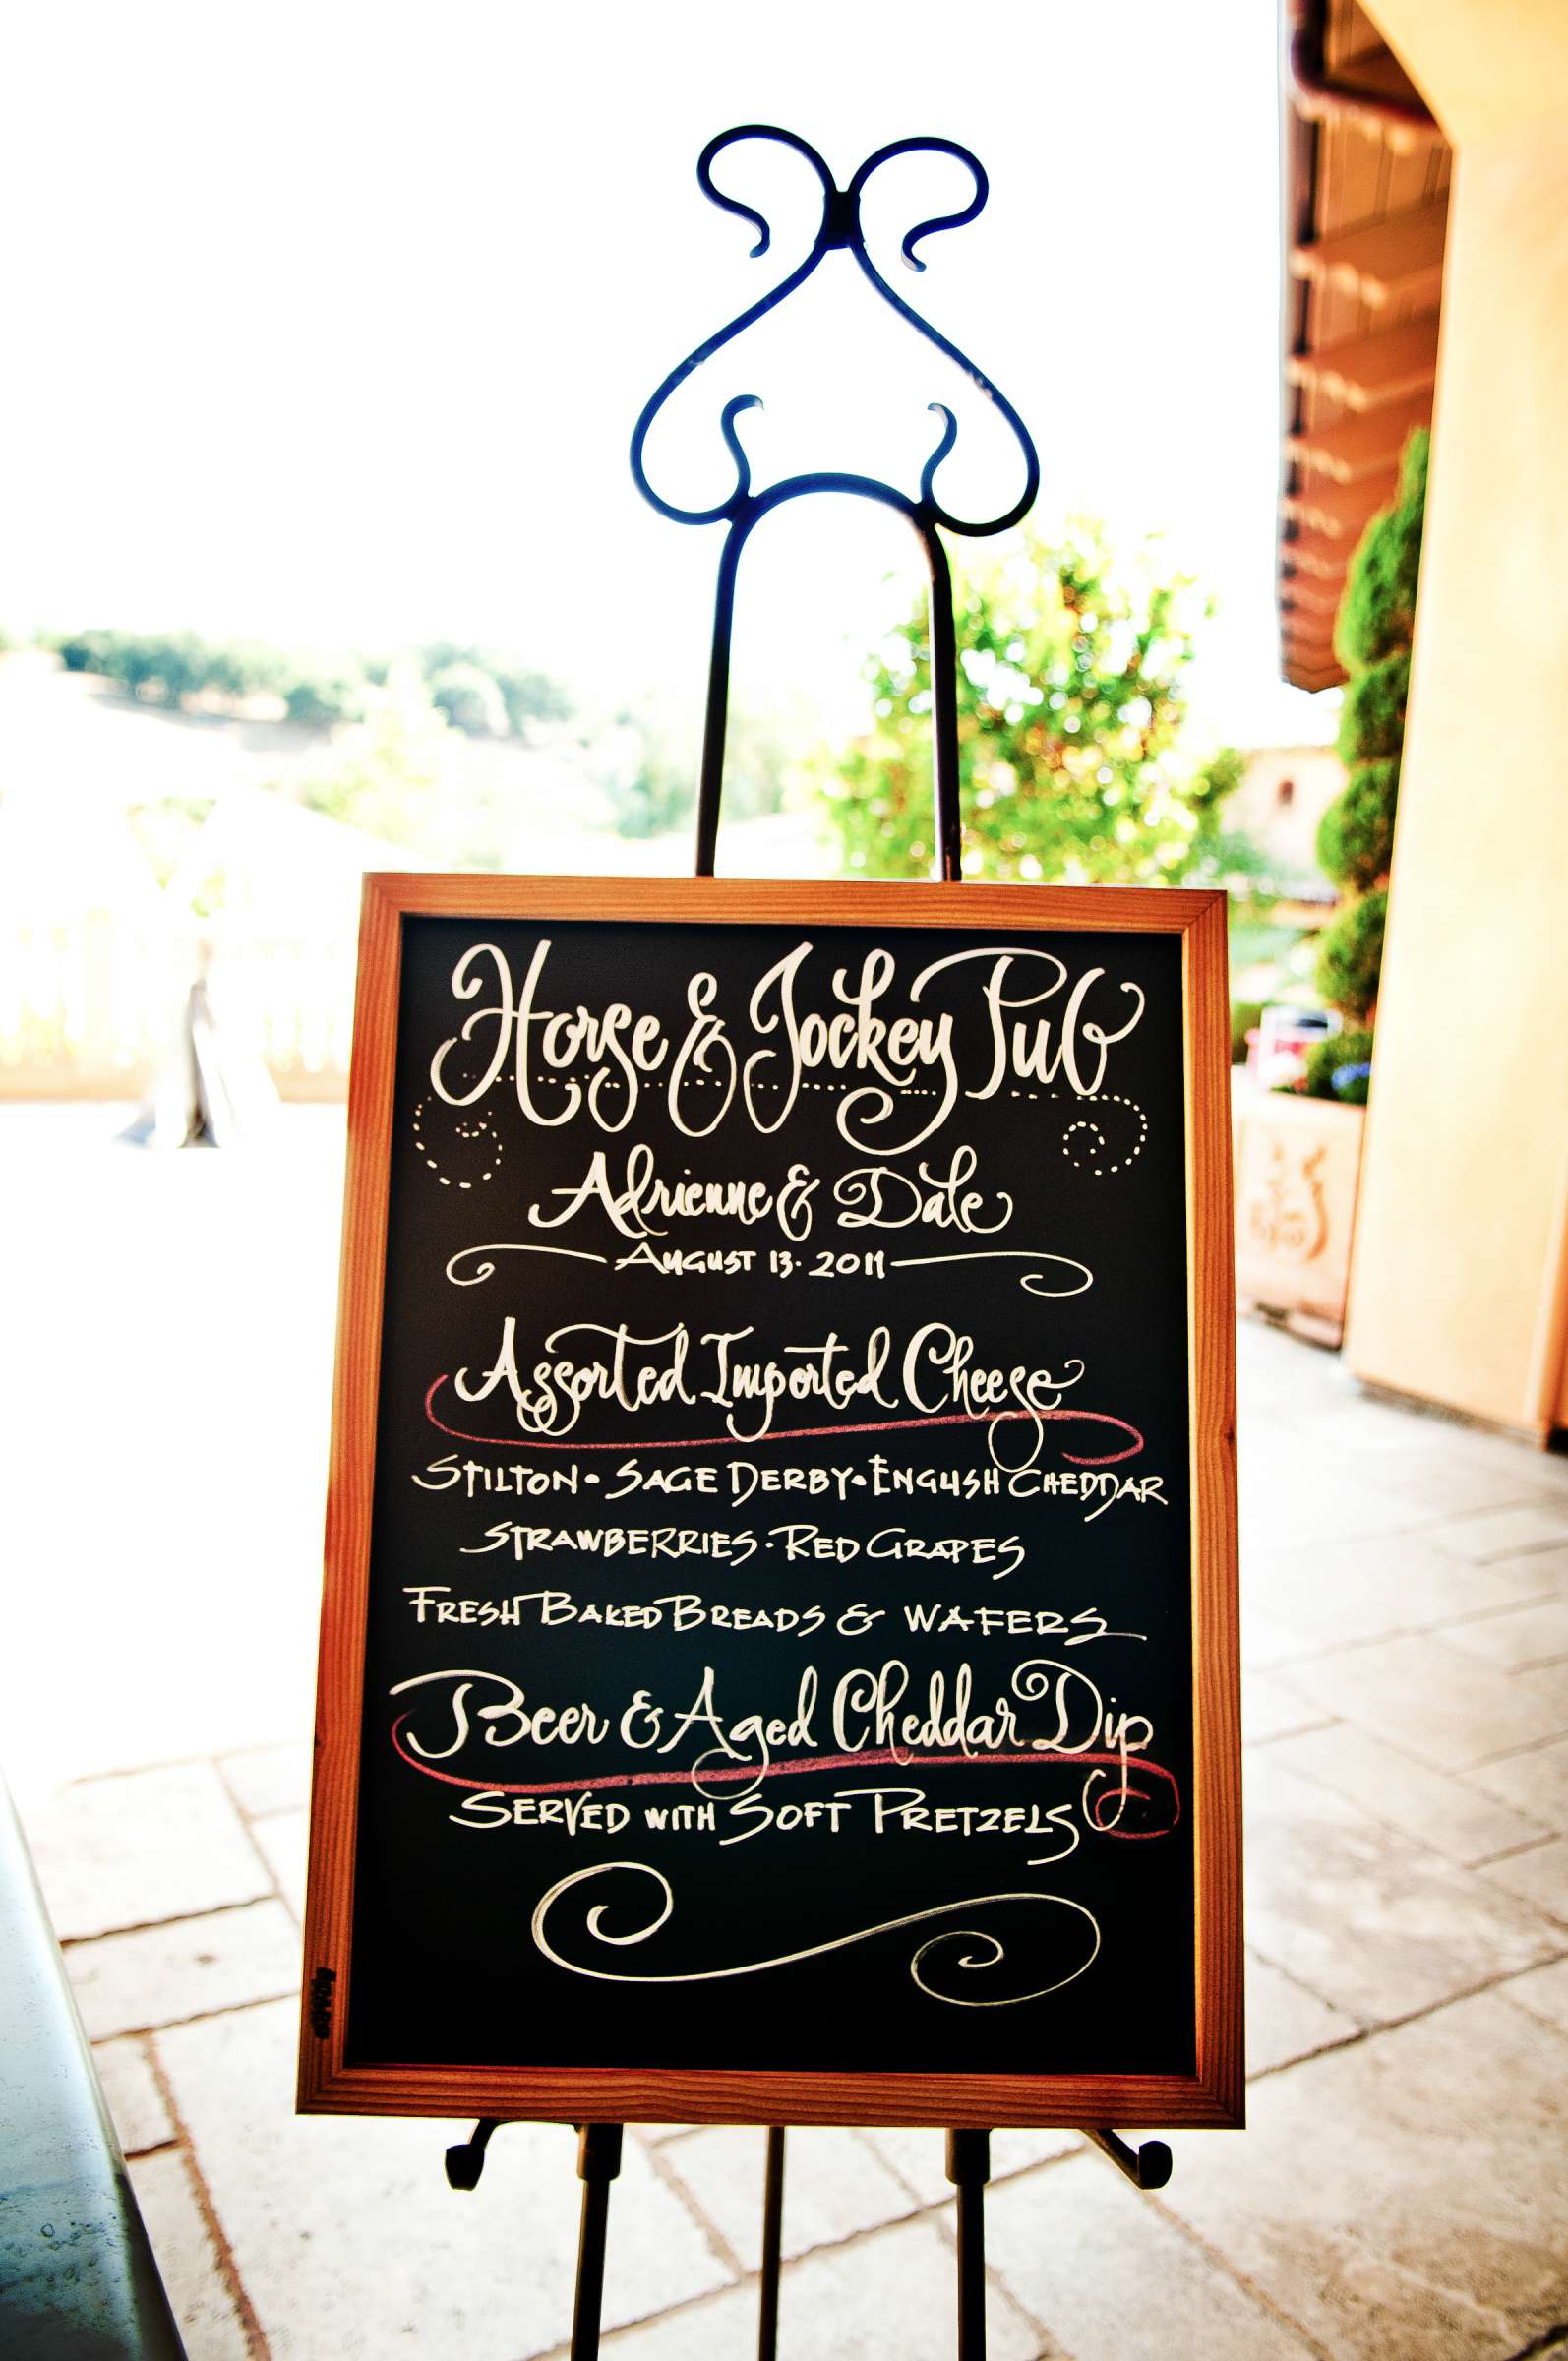 Horse & Jockey Pub
Adrienne & Dale
August 13. 2011
Assorted Imported Cheese
Stilton • Sage Derby • English Cheddar
Strawberries • Red Grapes
Fresh Baked Breads & Wafers
Beer & Aged Cheddar Dip
Served with Soft Pretzels